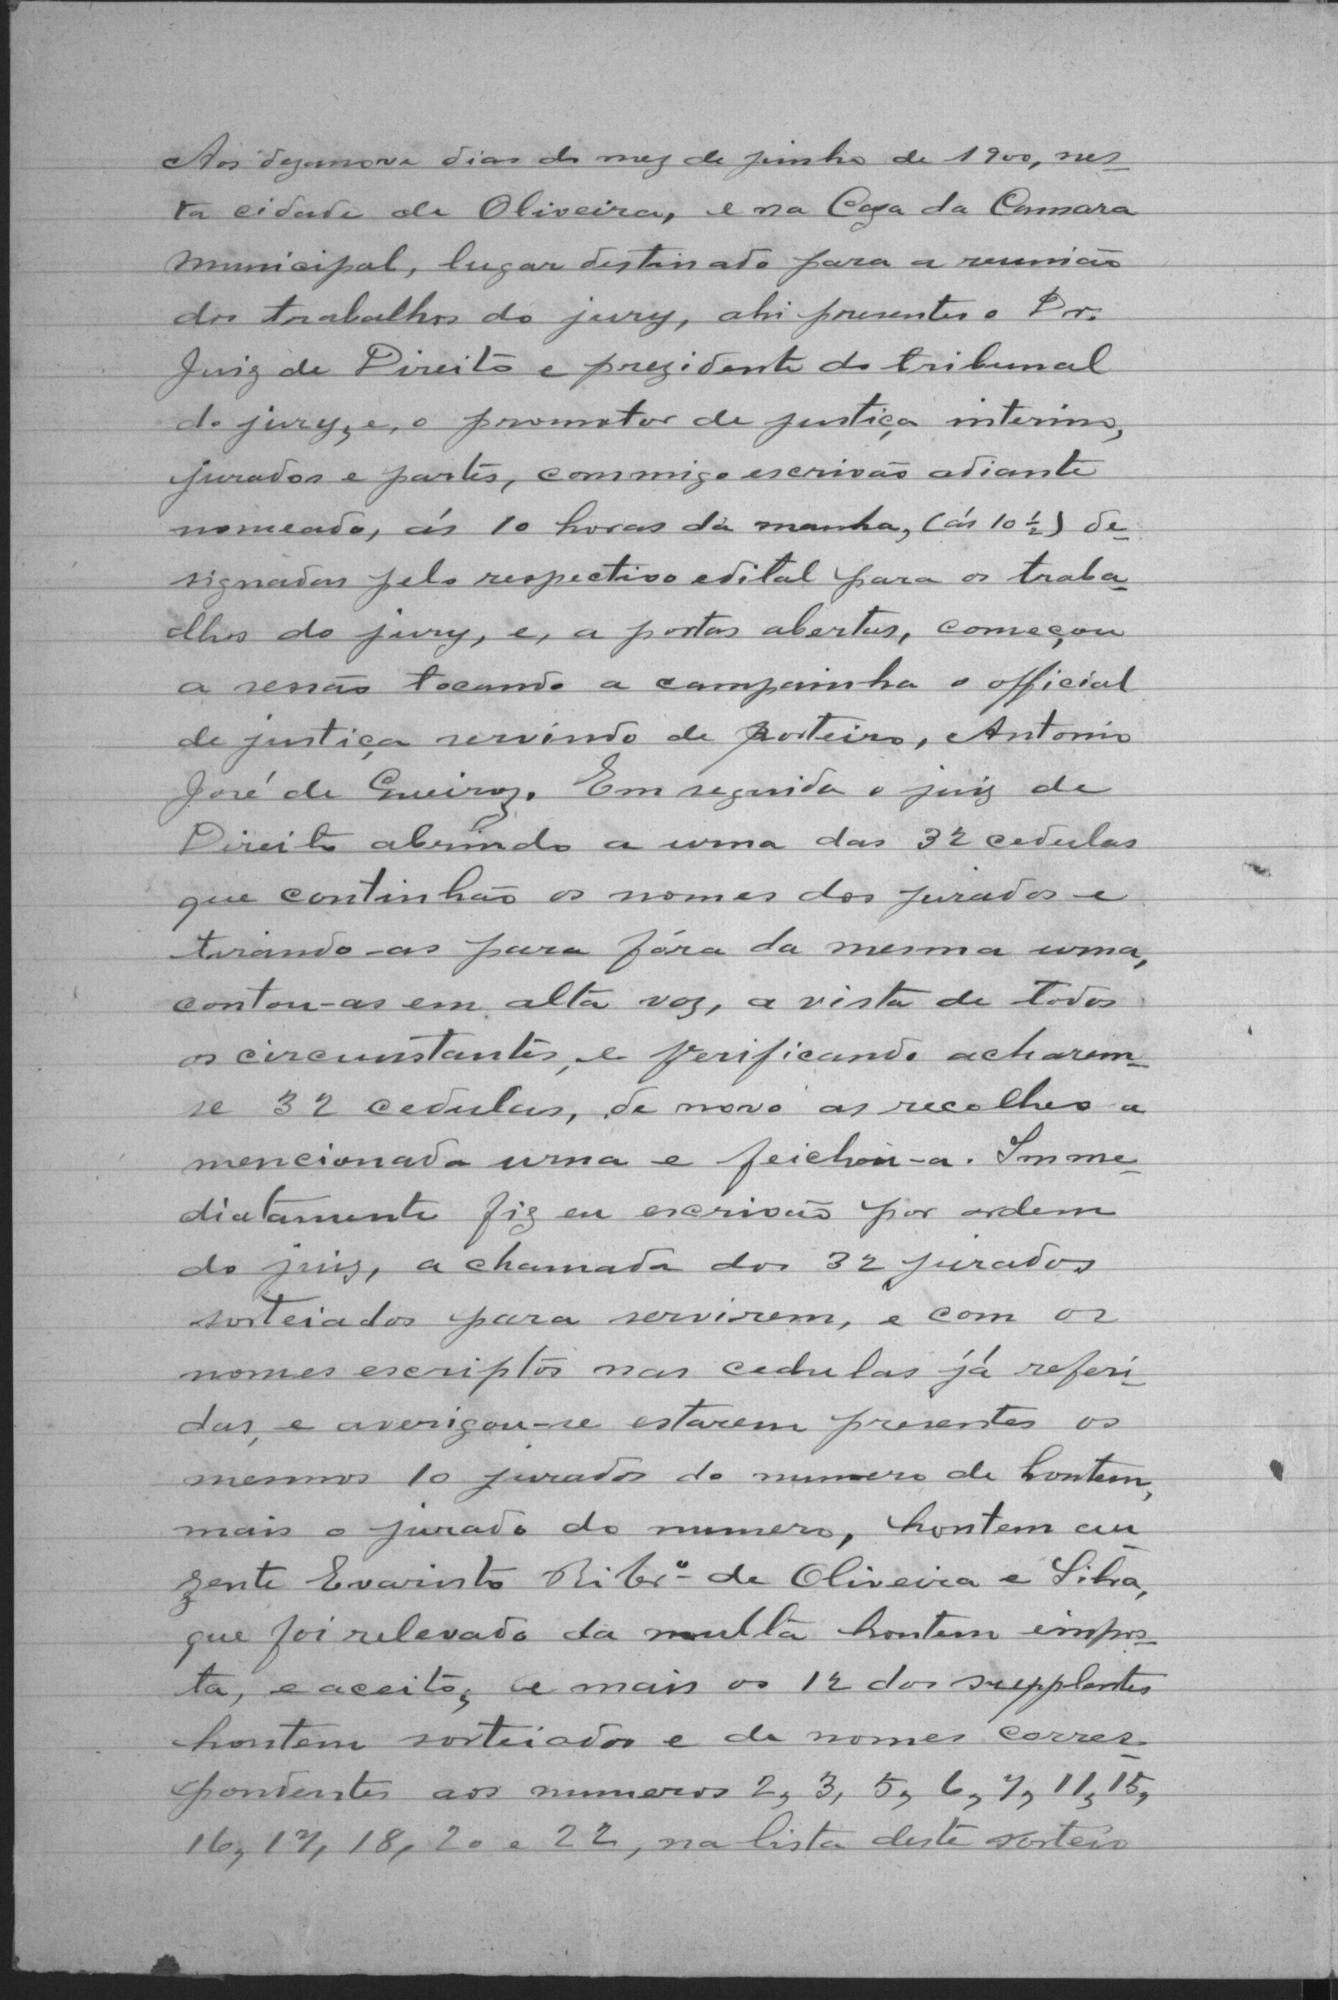 Aos dezanove dias do mez de junho de 1900, nes-
ta cidade de Oliveira, e na Caza da Camara
Municipal, lugar destinado para a reunião
dos trabalhos do jury, ahi presentes o Dr.
Juiz de Direito e prezidente do tribunal
do jury, e, o promotor de justiça interino,
jurados e partes, commigo escrivão adiante
nomeado, ás 10 horas da manha, (ás 10 ½) de-
signadas pelo respectivo edital para os traba-
lhos do jury, e, a portas abertas, começou
a sessão tocando a campainha o official
de justiça servindo de porteiro, Antonio
José de Queiroz. Em seguida o juiz de
Direito abrindo a urna das 32 cedulas
que continhão os nomes dos jurados e
tirando-as para fóra da mesma urna,
contou-as em alta voz, a vista de todos
os circunstantes, e verificando acharem-
se 32 cedulas, de novo as recolheo a
mencionada urna e feichou-a. Imme-
diatamente fiz eu escrivão por ordem
do juiz, a chamada dos 32 jurados
sorteiados para servirem, e com os
nomes escriptos nas cedulas já referi-
das, e averigou-se estarem presentes os
mesmos 10 jurados do numero de hontem,
mais o jurado do numero, hontem au-
zente Evaristo Ribrº de Oliveira e Silva,
que foi relevado da multa hontem impos-
ta, e aceito, e mais os 12 dos supplentes
hontem sorteiados e de nomes corres-
pondentes aos numeros 2, 3, 5, 6, 7, 11, 15,
16, 17, 18, 20 e 22, na lista deste sorteio